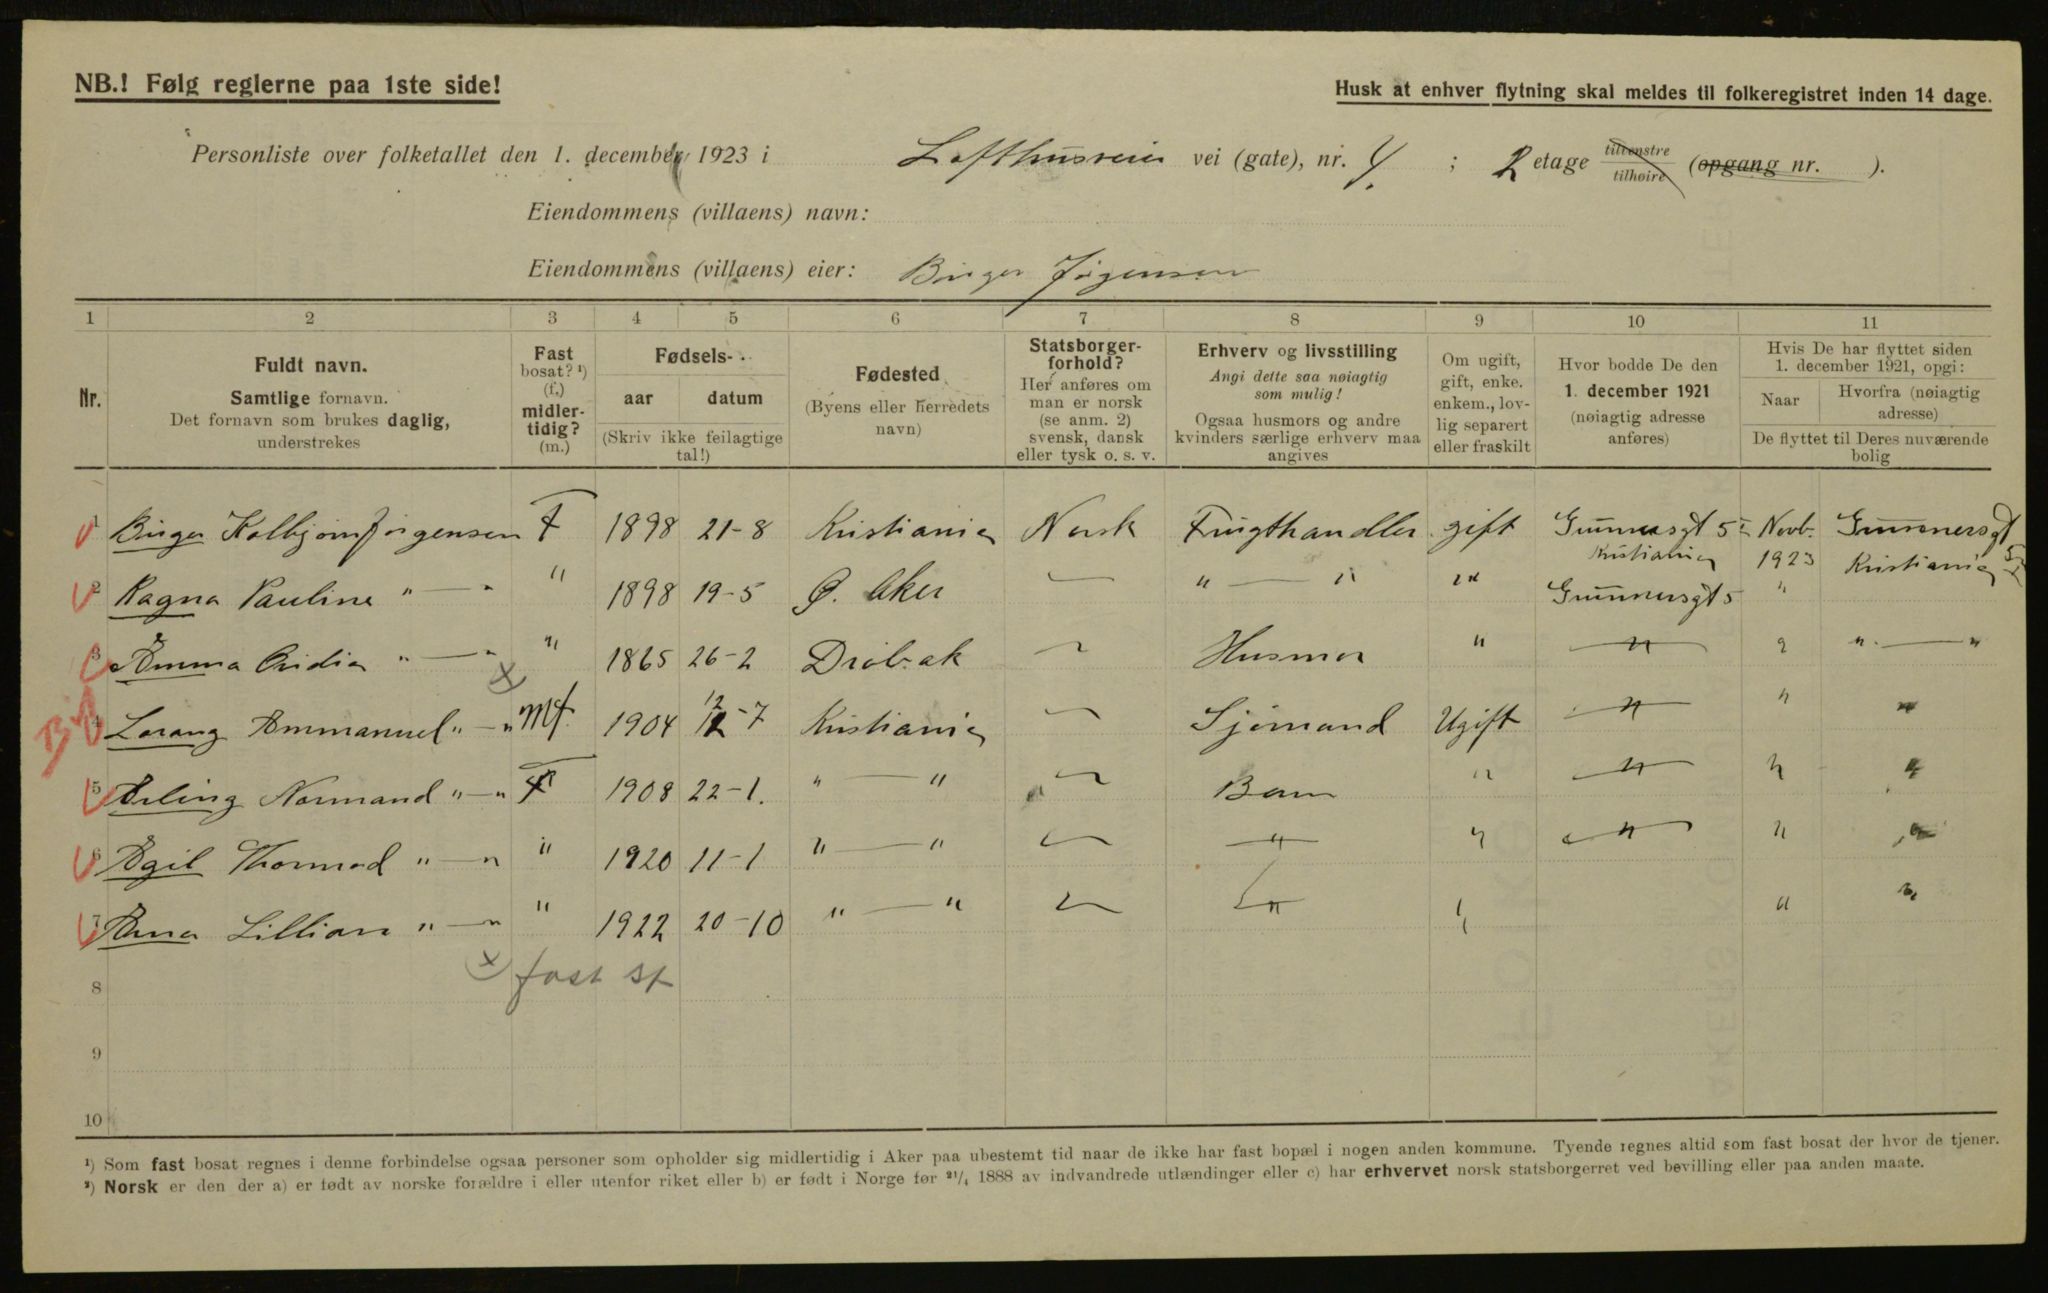 NB.! Følg reglerne paa 1ste side!
Husk at enhver flytning skal meldes til folkeregistret inden 14 dage.
Personliste over folketallet den 1. december 1923 i Lofthusveien vei (gate), nr. 4 ; 2 etage tilvenstre tilhøire (opgang nr. ).
Eiendommens (villaens) navn:
Eiendommens (villaens) eier: Birger Jörgensen
1 2 3 4 5 6 7 8 9 10 11
Nr.
Fuldt navn.
Samtlige fornavn.
Det fornavn som brukes daglig,
understrekes
Fast
bosat? ¹)
(f.)
midler-
tidig?
(m.)
Fødsels-
aar datum
(Skriv ikke feilagtige
tal!)
Fødested
(Byens eller herredets
navn)
Statsborger-
forhold?
Her anføres om
man er norsk
(se anm. 2)
svensk, dansk
eller tysk o. s. v.
Erhverv og livsstilling
Angi dette saa nøiagtig
som mulig!
Ogsaa husmors og andre
kvinders særlige erhverv maa
angives
Om ugift,
gift, enke.
enkem., lov-
lig separert
eller fraskilt
Hvor bodde De den
1. december 1921
(nøiagtig adresse
anføres)
Hvis De har flyttet siden
1. december 1921, opgi:
Naar
Hvorfra (nøiagtig
adresse)
De flyttet til Deres nuværende
bolig
1 Birger Kolbjörn Jörgensen F 1898 21-8 Kristiania Norsk Frugthandler gift Gunnersgt 5 Kristiania Novb. 1923 Gunnersgt 5 Kristiania
2 Ragna Pauline " — " " 1898 19-5 Ø. Aker — " — " " Gunnersgt 5 "
3 Emma Ovidia " — " " 1865 26-2 Dröbak — Husmor " — " — " " — "
By
4 Lorang Emmanuel " — " Mf. 1904 12-7 Kristiania — Sjömand Ugift — " — " "
5 Erling Normand " — " F 1908 22-1. " — " — Barn " — " — " "
6 Egil Thormod " — " " 1920 11-1 " — " — — " — " — " — " "
7 Erna Lillian " — " " 1922 20-10 " — " — — " — " " "
x) fast
8
9
10
¹) Som fast bosat regnes i denne forbindelse ogsaa personer som opholder sig midlertidig i Aker paa ubestemt tid naar de ikke har fast bopæl i nogen anden kommune. Tyende regnes altid som fast bosat der hvor de tjener.
²) Norsk er den der a) er født av norske forældre i eller utenfor riket eller b) er født i Norge før ²¹/₄ 1888 av indvandrede utlændinger eller c) har erhvervet norsk statsborgerret ved bevilling eller paa anden maate.